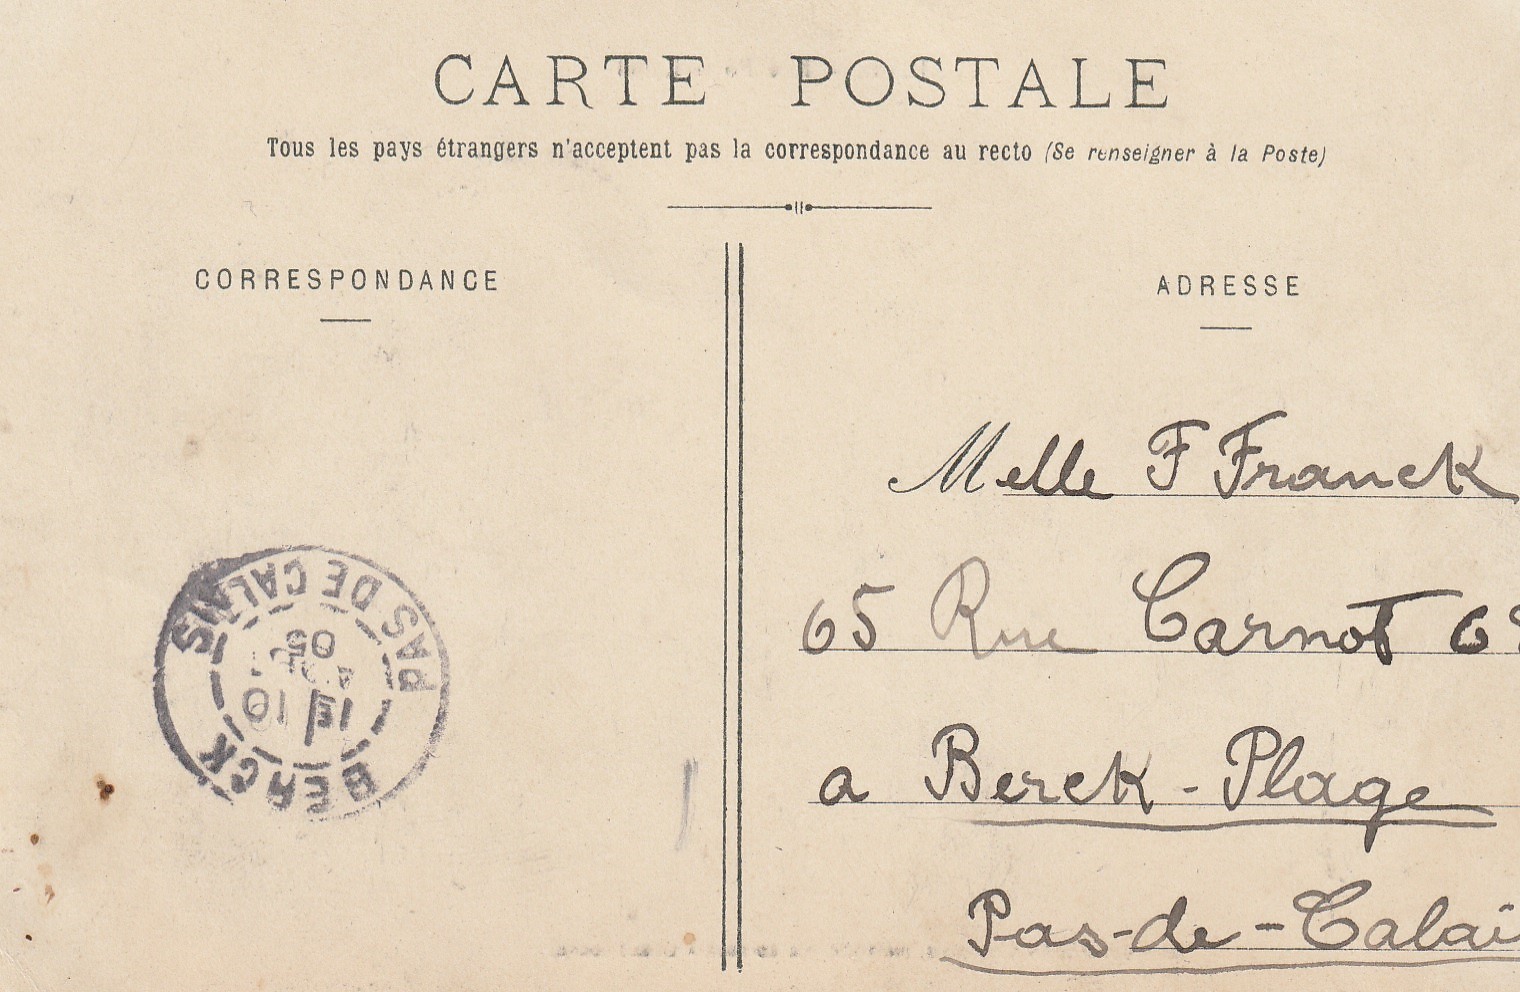 CARTE POSTALE
Tous les pays étrangers n'acceptent pas la correspondance au recto (Se renseigner à la Poste)
CORRESPONDANCE
ADRESSE
Melle F Franck
65 Rue Carnot
a Berck-Plage
Pas-de-Calai
BERCK
PAS DE CALAIS
10
05